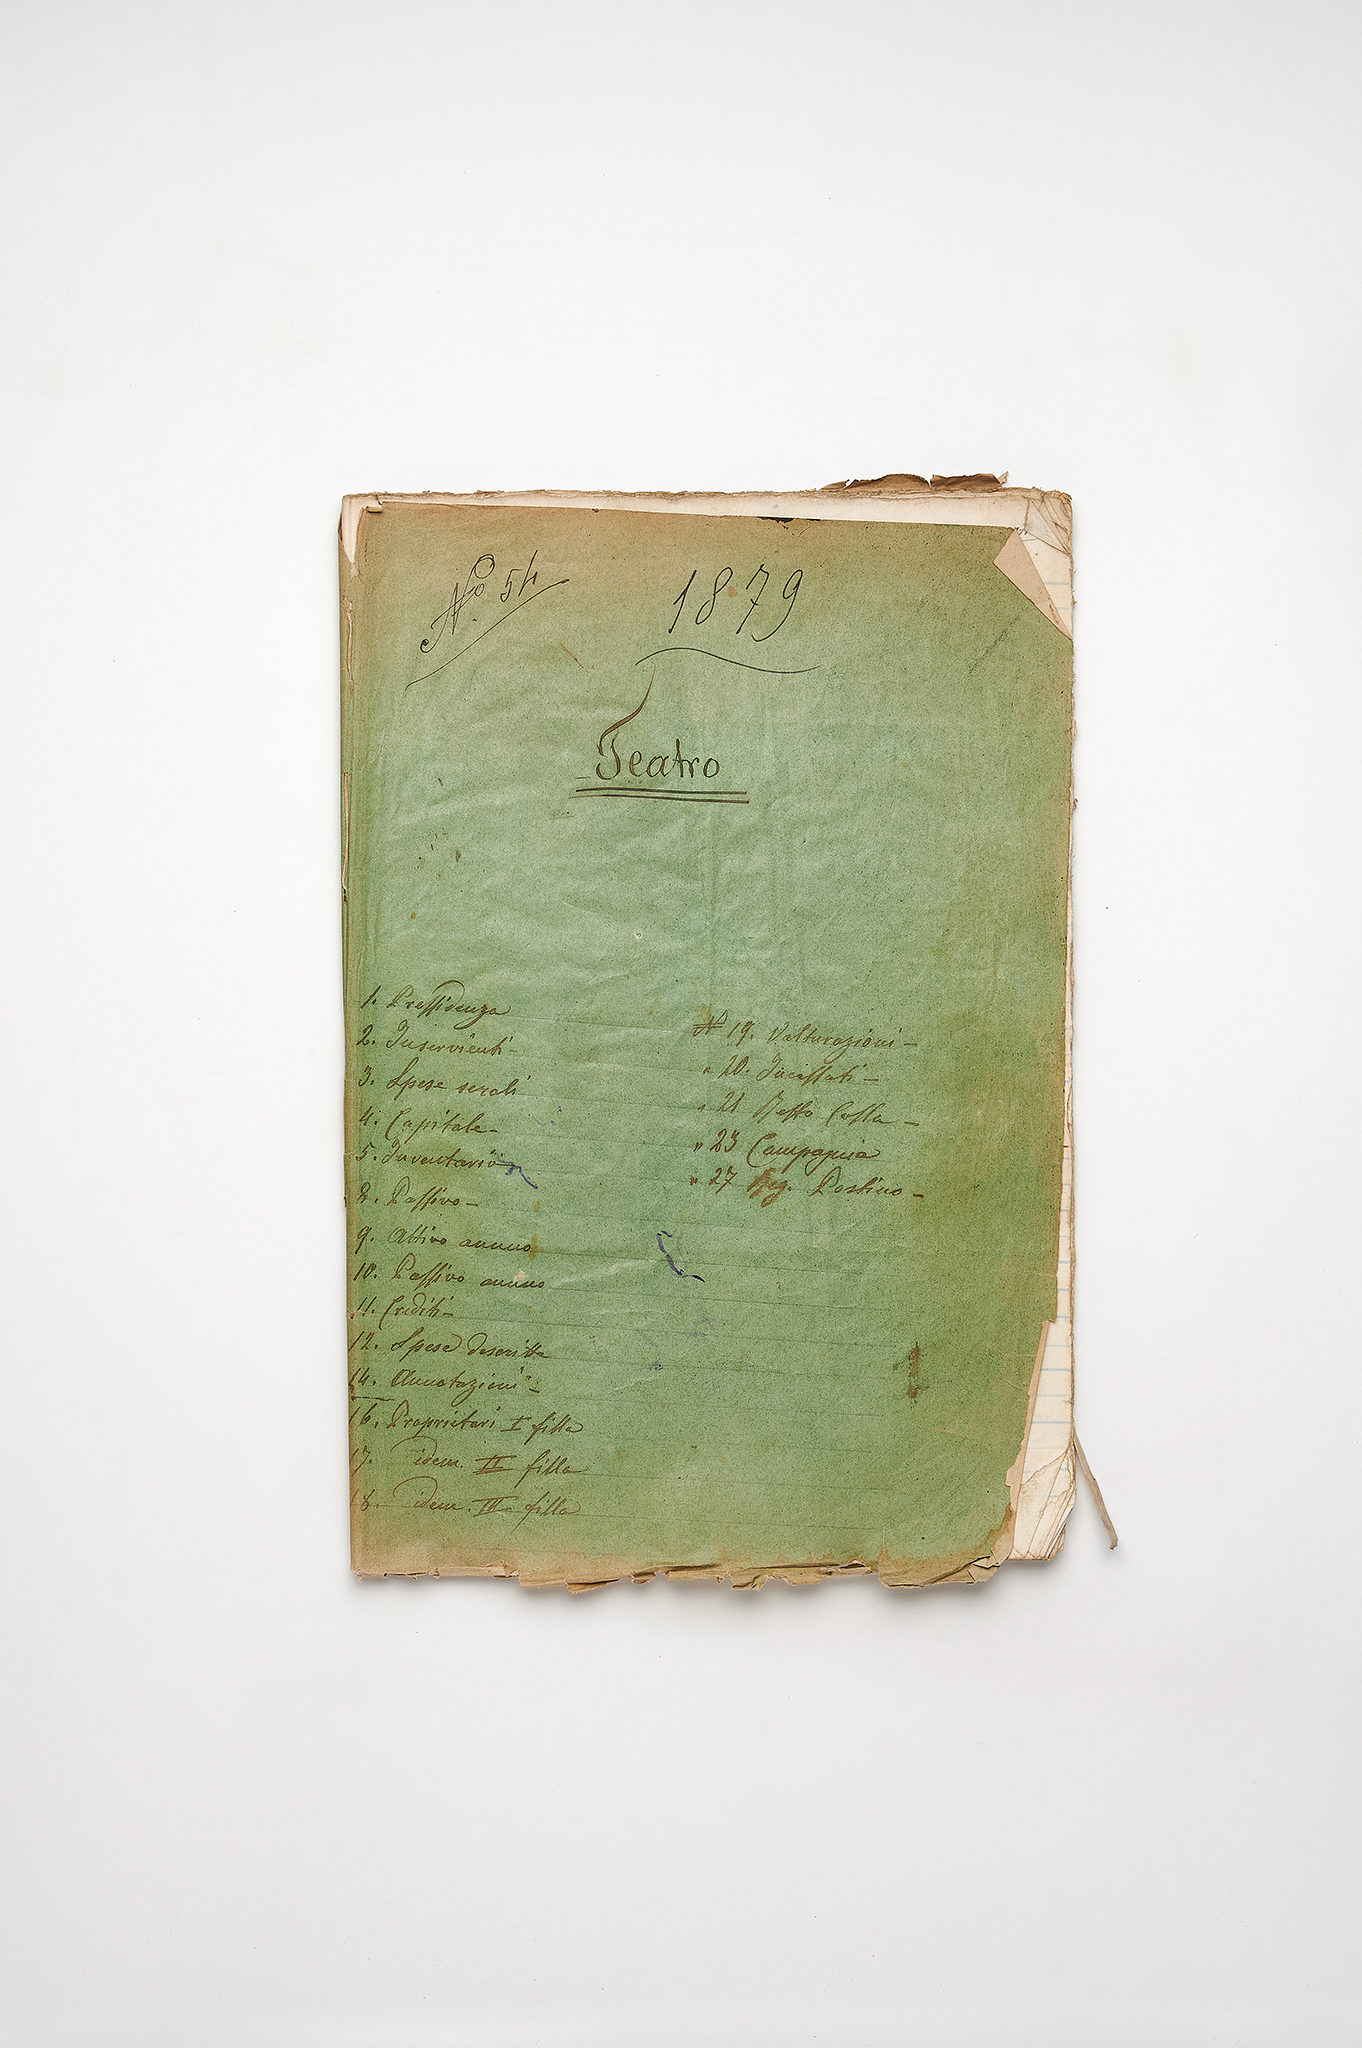 No. 54
1879
Teatro
1. Pressidenza
2. Inservienti -
3. Spese serali
4. Capitale -
5. Inventario
8. Passivo -
9. Attivo annuo
10. Passivo annuo
11. Crediti -
12. Spese descritte
14. Annotazioni -
16. Proprietari I filla
17. idem. II filla
18. idem. III filla
N 19. Valturazioni -
" 20. Incassati -
" 21 Resto Cassa -
" 23 Compagnia
" 27 Postino -